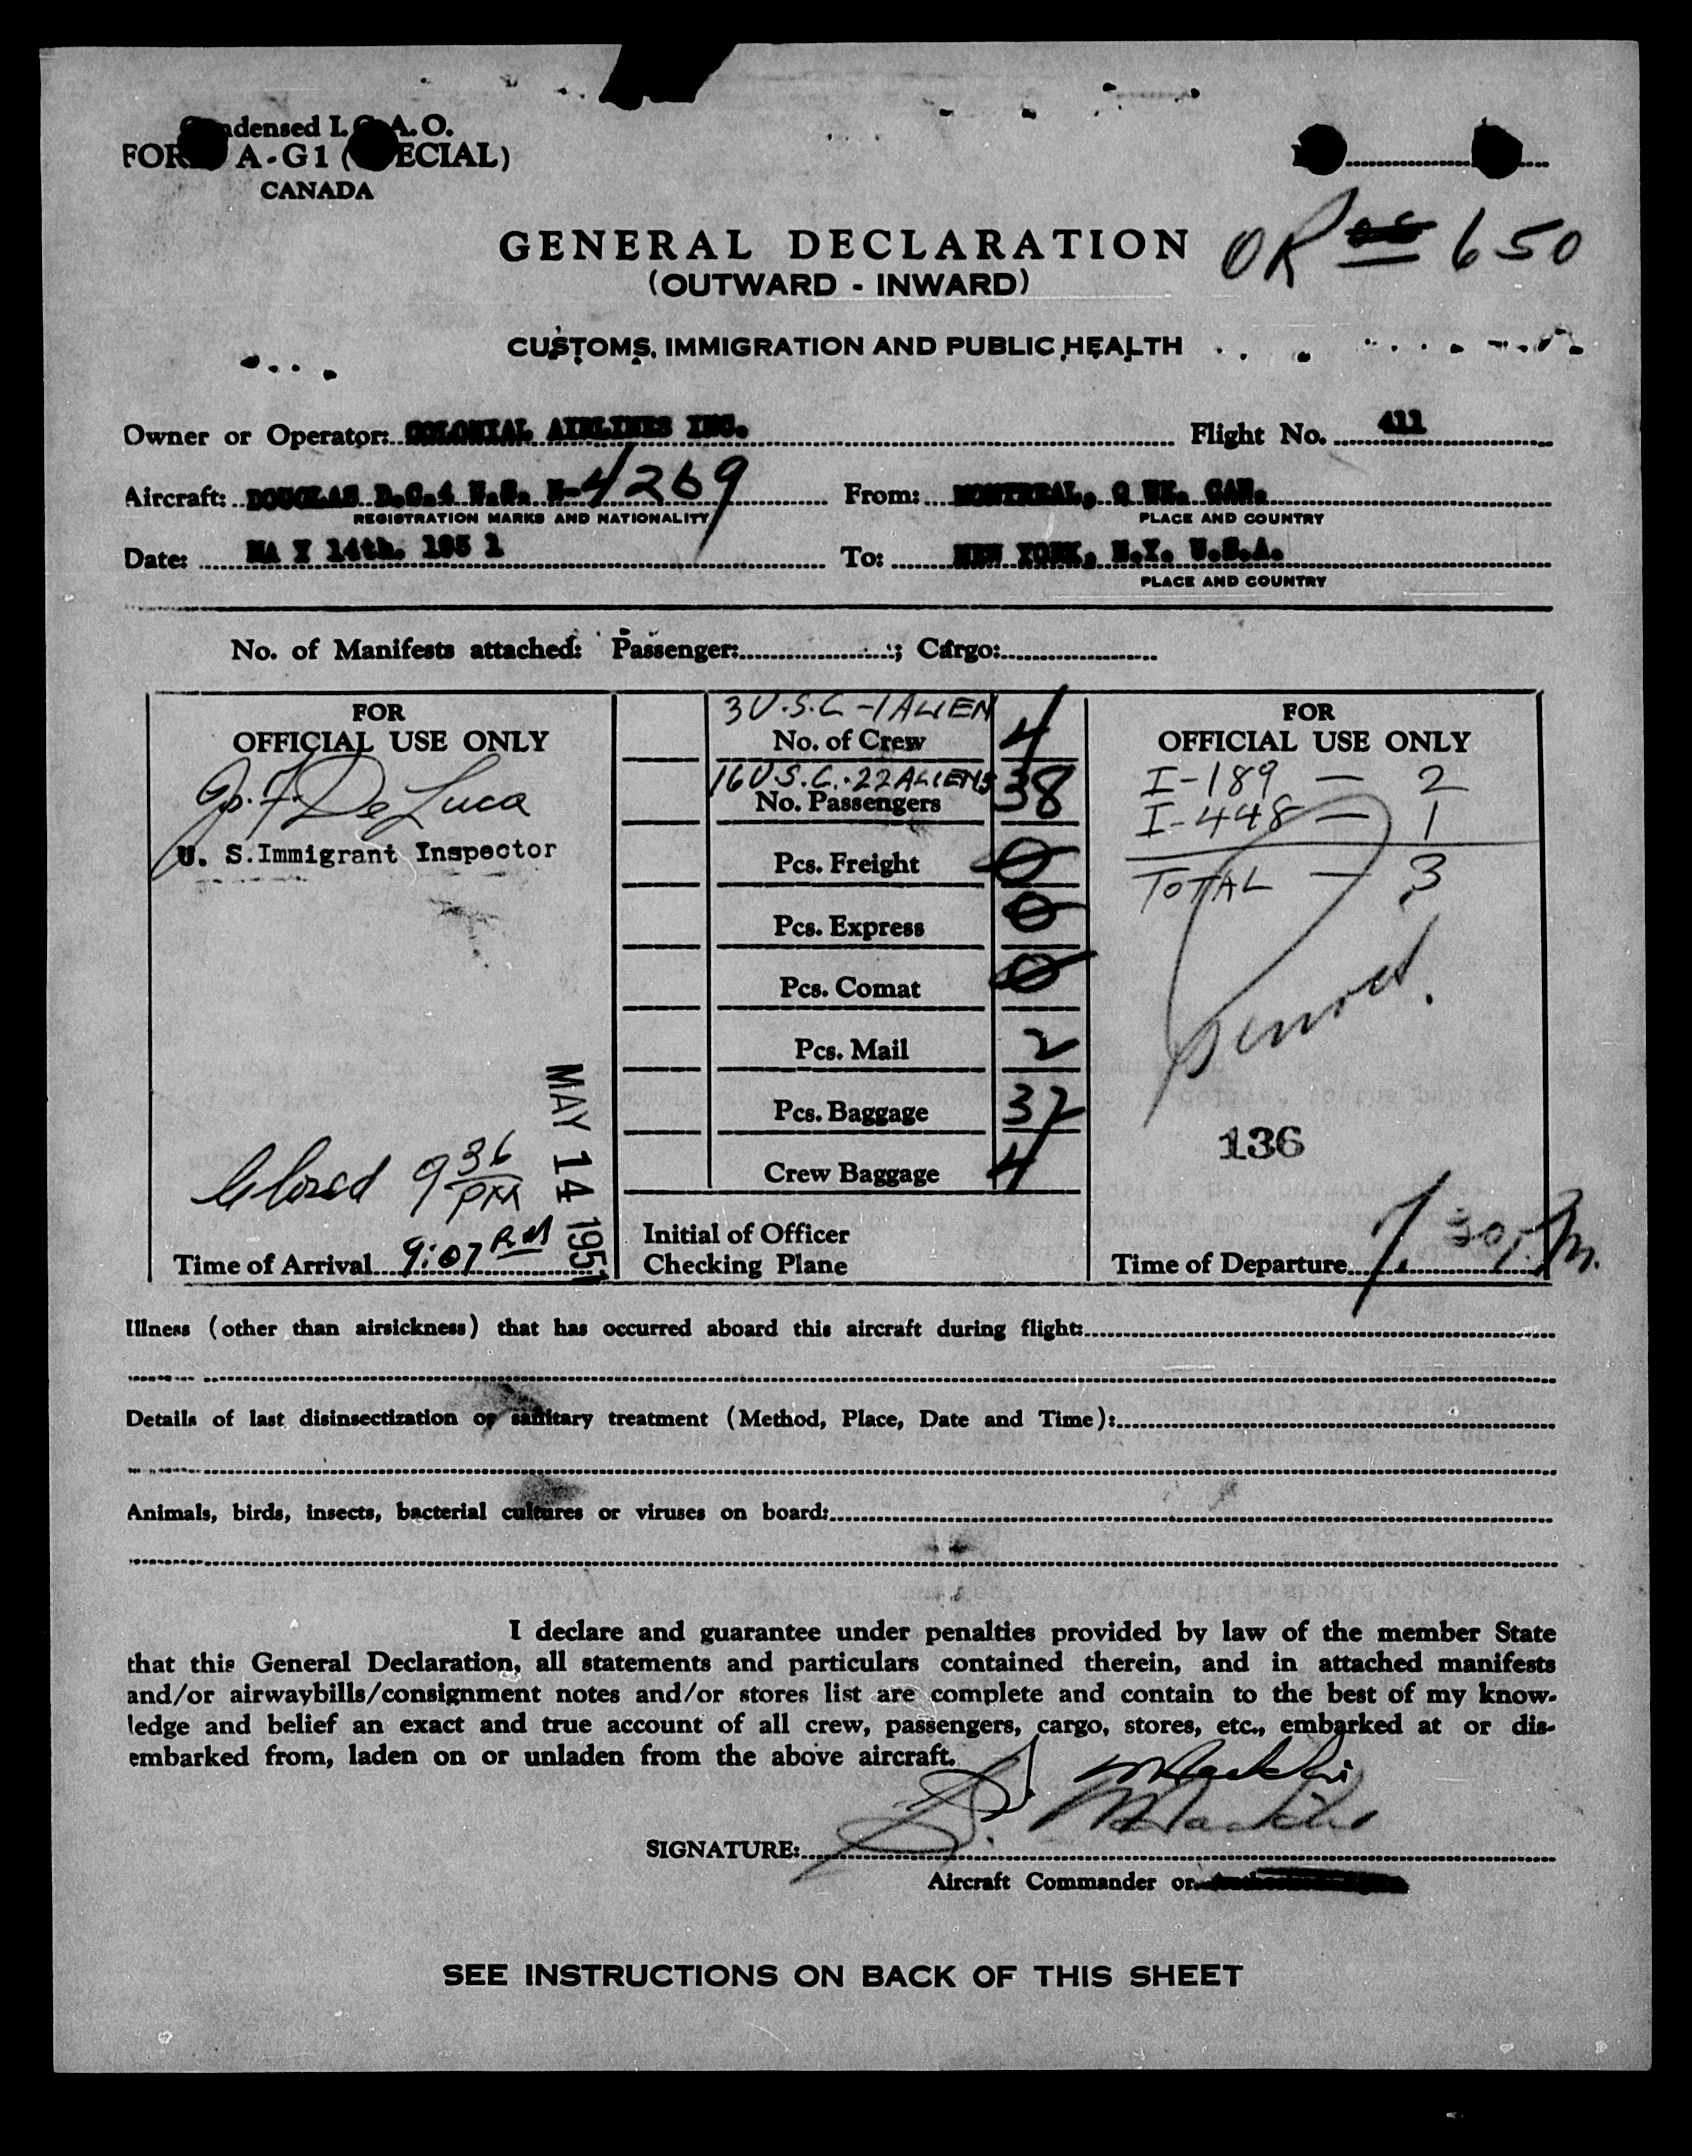 Condensed I.C.A.O.
FORM A-G1 (SPECIAL)
CANADA
GENERAL DECLARATION
OR 650
(OUTWARD - INWARD)
CUSTOMS, IMMIGRATION AND PUBLIC HEALTH
Owner or Operator: COLONIAL AIRLINES INC. Flight No. 411
Aircraft: DOUGLAS D.C.4 U.S. N-4269 From: MONTREAL, Q UE. CAN.
REGISTRATION MARKS AND NATIONALITY PLACE AND COUNTRY
Date: MA Y 14th. 195 1 To: NEW YORK, N.Y. U.S.A.
PLACE AND COUNTRY
No. of Manifests attached: Passenger: ; Cargo:
FOR
OFFICIAL USE ONLY
De Luca
U. S.Immigrant Inspector
MAY 14 1951
Closed 9 36 PM
Time of Arrival 9:07 PM
3 U.S.C - 1 ALIEN
No. of Crew 4
16 U.S.C. - 22 ALIENS
No. Passengers 38
Pcs. Freight 0
Pcs. Express 0
Pcs. Comat 0
Pcs. Mail 2
Pcs. Baggage 37
Crew Baggage 4
Initial of Officer
Checking Plane
FOR
OFFICIAL USE ONLY
I-189 — 2
I-448 — 1
TOTAL — 3
136
Time of Departure 7.30 P.M.
Illness (other than airsickness) that has occurred aboard this aircraft during flight:
Details of last disinsectization or sanitary treatment (Method, Place, Date and Time):
Animals, birds, insects, bacterial cultures or viruses on board:
I declare and guarantee under penalties provided by law of the member State
that this General Declaration, all statements and particulars contained therein, and in attached manifests
and/or airwaybills/consignment notes and/or stores list are complete and contain to the best of my know-
ledge and belief an exact and true account of all crew, passengers, cargo, stores, etc., embarked at or dis-
embarked from, laden on or unladen from the above aircraft.
SIGNATURE:
Aircraft Commander or
SEE INSTRUCTIONS ON BACK OF THIS SHEET